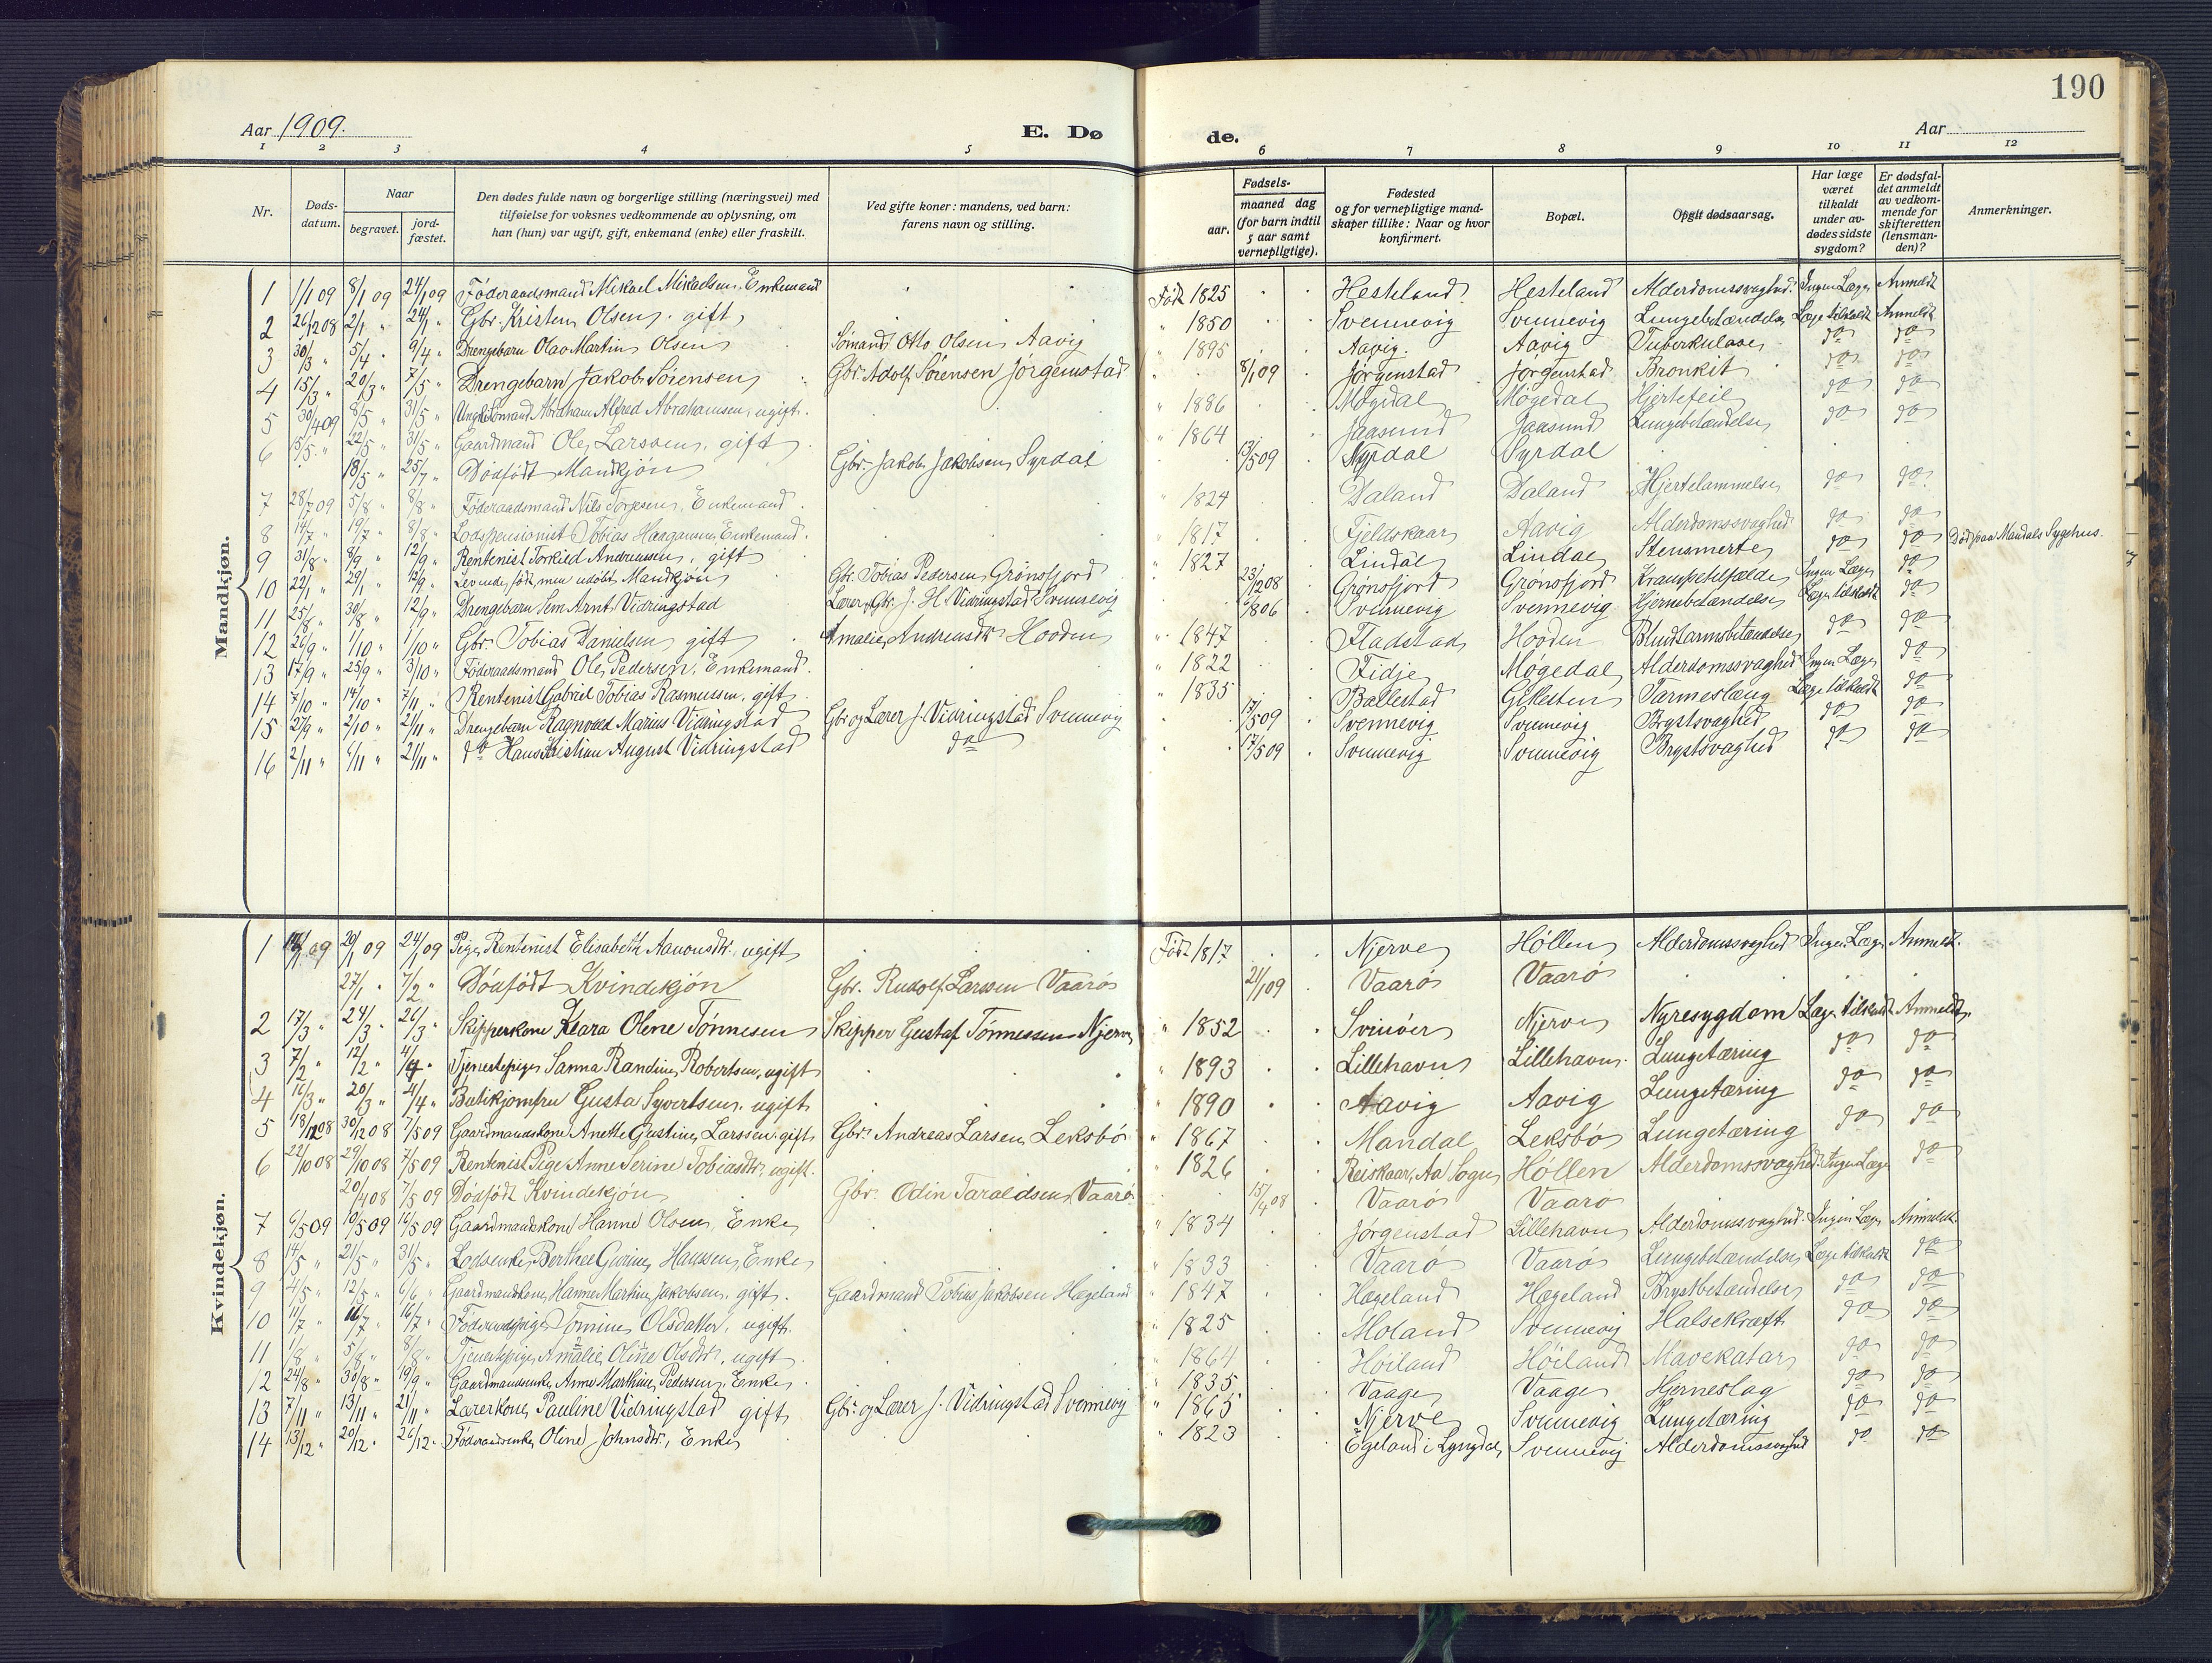 190
Aar 1909.
E. Dø de.
Aar
1 2 3 4 5 6 7 8 9 10 11 12
Nr.
Døds-datum.
Naar
begravet.
jord-fæstet.
Den dødes fulde navn og borgerlige stilling (næringsvei) med tilføielse for voksnes vedkommende av oplysning, om han (hun) var ugift, gift, enkemand (enke) eller fraskilt.
Ved gifte koner: mandens, ved barn: farens navn og stilling.
Fødsels-
aar. maaned dag (for barn indtil 5 aar samt vernepligtige).
Fødested og for vernepligtige mandskaper tillike: Naar og hvor konfirmert.
Bopæl.
Opgit dødsaarsag.
Har læge været tilkaldt under avdødes sidste sygdom?
Er dødsfaldet anmeldt av vedkommende for skifteretten (lensmanden)?
Anmerkninger.
Mandkjøn.
1 1/1 09 8/1 09 24/1 09 Føderaadsmand Mikael Mikaelsen, Enkemand Født 1825 Hesteland Hesteland Alderdomssvaghed Ingen Læge Anmeldt
2 26/12 08 2/1 " 24/1 " Gbr. Kristen Olsen, gift " 1850 Svennevig Svennevig Lungebetændelse Læge tilkaldt Anmeldt
3 30/3 " 5/4 " 9/4 " Drengebarn Olav Martin Olsen Sømand Otto Olsen Aavig " 1895 Aavig Aavig Tuberkulose do do
4 15/3 " 20/3 " 7/5 " Drengebarn Jakob Sørensen Gbr. Adolf Sørensen Jørgenstad 8/1 09 Jørgenstad Jørgenstad Bronkit do do
5 30/4 09 8/5 " 31/5 " Ungk. Sømand Abraham Alfred Abrahamsen, ugift. " 1886 Møgedal Møgedal Hjertefeil do do
6 15/5 " 22/5 " 31/5 " Gaardmand Ole Larssen, gift " 1864 Jaasund Jaasund Lungebetændelse do do
18/5 " 25/7 " Dødfødt Mandkjøn Gbr. Jakob Jakobsen Syrdal 13/5 09 Syrdal Syrdal
7 28/7 09 5/8 " 8/8 " Føderaadsmand Nils Torjesen, Enkemand " 1824 Daland Daland Hjertelammelse do do
8 14/7 " 19/7 " 8/8 " Lodspensionist Tobias Haagensen, Enkemand. " 1817 Fjeldskaar Aavig Alderdomssvaghed do do
9 31/8 " 8/9 " 12/9 " Rentenist Torkild Andreassen, gift " 1827 Lindal Lindal Stensmerte do do Død paa Mandals Sygehus.
10 22/1 " 29/1 " 12/9 " Levende født, men udøbt Mandkjøn Gbr. Tobias Pedersen Grønsfjord 23/12 08 Grønsfjord Grønsfjord Krampetilfælde Ingen Læge do
11 25/8 " 30/8 " 12/9 " Drengebarn Sem Arnt Vidringstad Lærer, Gbr. J. H. Vidringstad Svennevig Svennevig Svennevig Hjernebetændelse Læge tilkaldt do
12 26/9 " 1/10 " 1/10 " Gbr. Tobias Danielsen, gift Amalie Andreasdtr. Hooden " 1847 Fladstad Hooden Blindtarmsbetændelse do do
13 17/9 " 25/9 " 3/10 " Føderaadsmand Ole Pedersen, Enkemand. " 1822 Fidje Møgedal Alderdomssvaghed Ingen Læge do
14 7/10 " 14/10 " 7/11 " Rentenist Gabriel Tobias Rasmussen, gift " 1835 Ballestad Giftesten Tarmeslæng Læge tilkaldt do
15 27/9 " 2/10 " 21/11 " Drengebarn Ragnvald Marius Vidringstad Gbr. og Lærer J. Vidringstad Svennevig 17/5 09 Svennevig Svennevig Brystsvaghed do do
16 2/11 " 6/11 " 21/11 " do Hans Kristian August Vidringstad do 17/5 09 Svennevig Svennevig Brystsvaghed do do
Kvindekjøn.
1 09 20/1 09 24/1 09 Pige, Rentenist Elisabeth Aanonsdtr., ugift Født 1817 Njerve Høllen Alderdomssvaghed Ingen Læge Anmeldt.
27/1 " 7/2 " Dødfødt Kvindekjøn Gbr. Rudolf Larssen Vaarø 21/1 09 Vaarø Vaarø
2 17/3 " 24/3 " 26/3 " Skipperkone Klara Olene Tønnesen Skipper Gustaf Tønnessen Njerve " 1852 Svinøer Njerve Nyresygdom Læge tilkaldt Anmeldt.
3 7/2 " 12/2 " 4/4 " Tjenestepige Sanna Randine Robertsen, ugift " 1893 Lillehavn Lillehavn Lungetæring do do
4 16/3 " 20/3 " 4/4 " Butikjomfru Gusta Syvertsen, ugift " 1890 Aavig Aavig Lungetæring do do
5 18/12 08 30/12 08 7/5 09 Gaardmandskone Anette Gustine Larssen, gift Gbr. Andreas Larsen Leksbø " 1867 Mandal Leksbø Lungetæring do do
6 22/10 08 29/10 08 7/5 09 Rentenist Pige Anne Serine Tobiasdtr., ugift. " 1826 Reiskaar, Aa Sogn Høllen Alderdomssvaghed Ingen Læge do
20/4 08 7/5 09 Dødfødt Kvindekjøn Gbr. Odin Taraldsen Vaarø 15/4 08 Vaarø Vaarø
7 6/5 09 10/5 09 16/5 09 Gaardmandskone Hanne Olsen, Enke " 1834 Jørgenstad Lillehavn Alderdomssvaghed Ingen Læge Anmeldt.
8 14/5 " 21/5 " 31/5 " Lodsenke Berthe Gurine Hanssen, Enke " 1833 Vaarø Vaarø Lungebetændelse Læge tilkaldt do
9 4/5 " 12/5 " 6/6 " Gaardmandskone Hanne Martine Jakobsen, gift. Gaardmand Tobias Jakobsen Hægeland " 1847 Hægeland Hægeland Brystbetændelse do do
10 11/7 " 16/7 " 16/7 " Føderaadspige Tomine Olsdatter, ugift. " 1825 Moland Svennevig Halsekræft do do
11 1/8 " 5/8 " 8/8 " Tjenestepige Amalie Oline Olsdtr., ugift " 1864 Høiland Høiland Mavekatar do do
12 24/8 " 30/8 " 19/9 " Gaardmandsenke Anne Marthine Pedersen, Enke " 1835 Vaage Vaage Hjerneslag do do
13 7/11 " 13/11 " 21/11 " Lærerkone Pauline Vidringstad gift Gbr. og Lærer J. Vidringstad Svennevig " 1865 Njerve Svennevig Lungetæring do do
14 13/12 " 20/12 " 26/12 " Føderaadsenke Oline Johnsdtr., Enke " 1823 Egeland i Lyngdal Svennevig Alderdomssvaghed do do